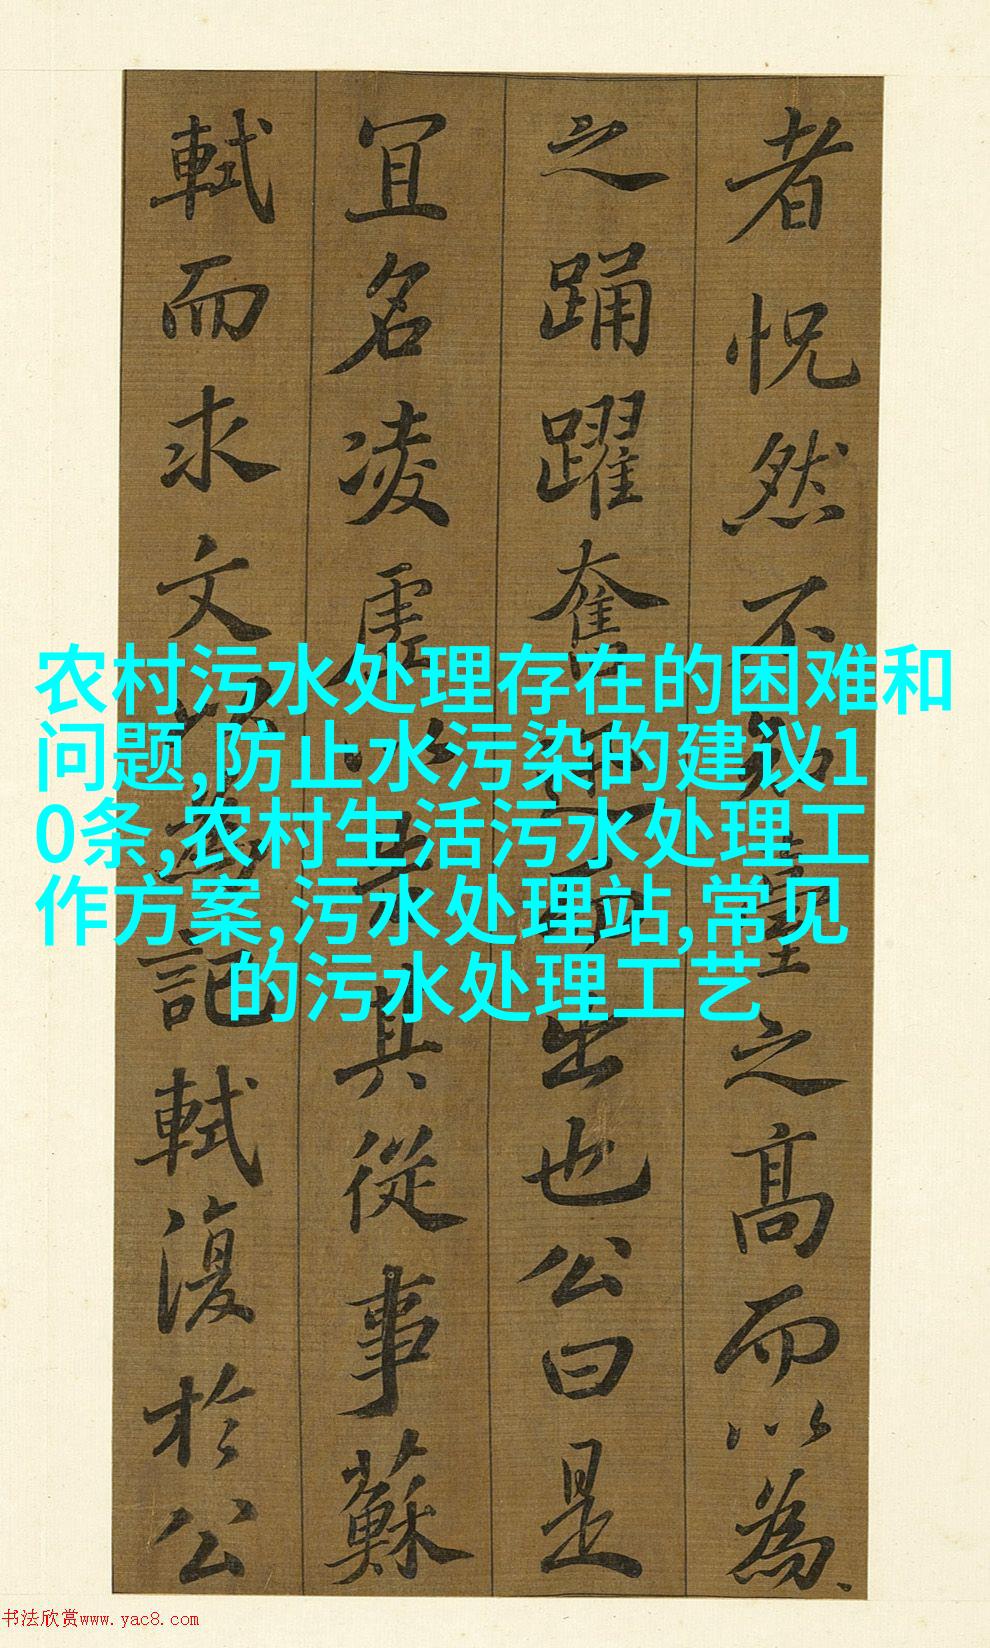 者怳然不知臺之髙而以為
之踊躍奮迅而出也公曰是
冝名凌虛以告其從事蘇
軾而求文以為記軾復於公
农村污水处理存在的困难和
问题,防止水污染的建议1
0条,农村生活污水处理工
作方案,污水处理站,常见
的污水处理工艺
书法欣赏www.yac8.com